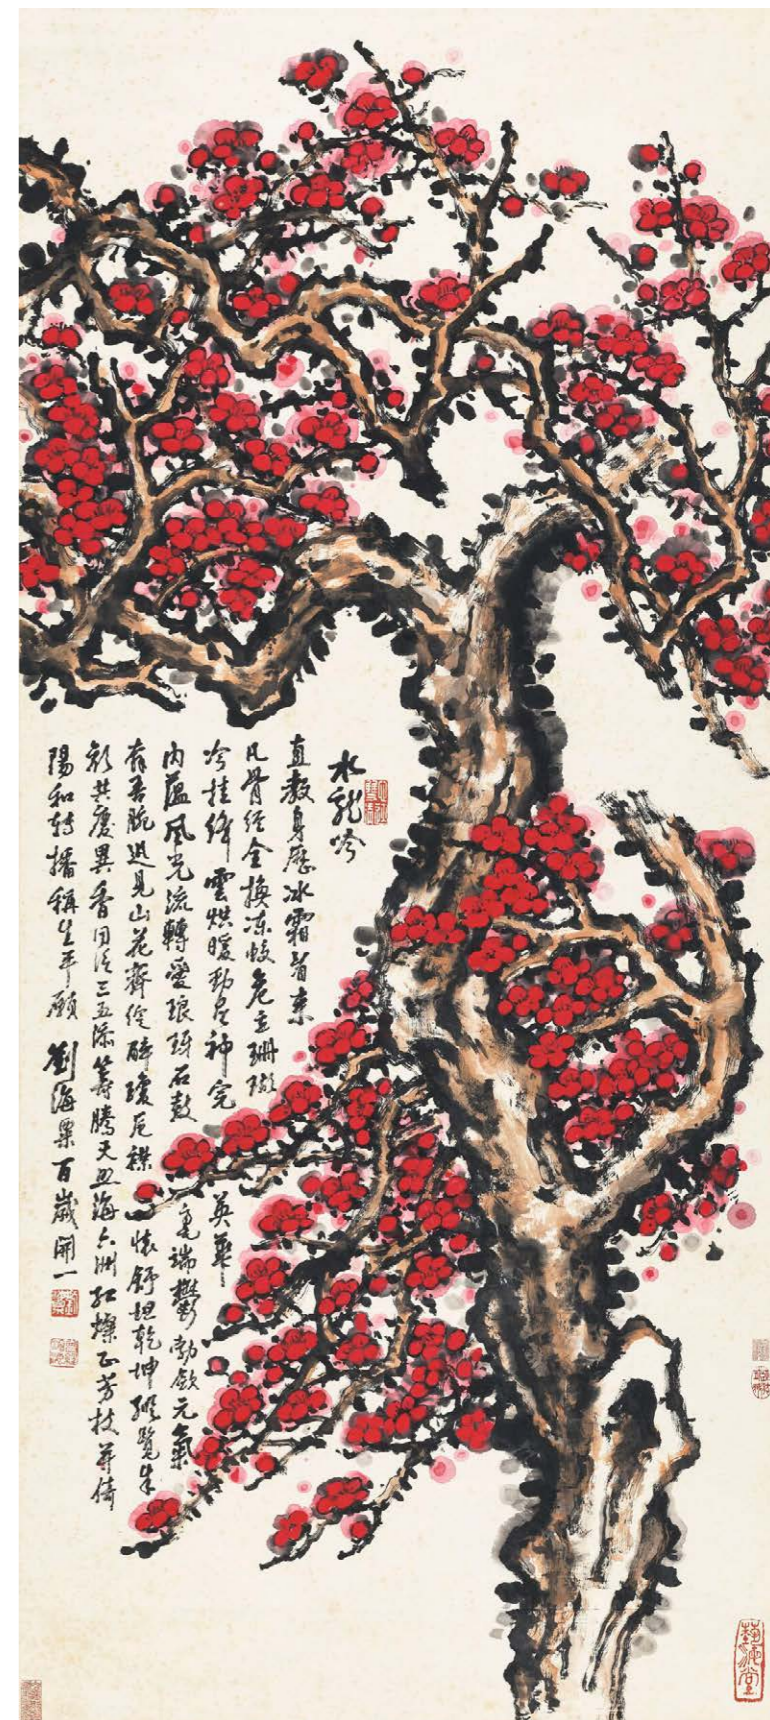 水龍吟
直教身歷冰霜看来
凡骨經全換凍蛟危立珊瑚
冷挂絳雲烘暖勁足神完英華
内蘊風光流轉愛琅玡石鼓毫端鬱勃斂元氣
奔吾腕迅見山花齊綻醉瓊卮襟懷舒坦乾坤縱覽朱
顏共慶異香同泛三五添籌騰天照海六洲紅燦正芳枝并倚
陽和轉播稱生平願 劉海粟百歲開一